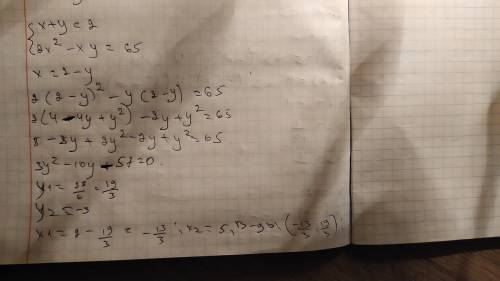 {x+y=2
{2x² - xy = 65
x = 2 - y
2(2-y)² - y(2-y) = 65
2(4-4y+y²) - 2y+y² = 65
8 - 8y + 2y² - 2y + y² = 65
3y² - 10y - 57 = 0
y1 = 38/6 = 19/3
y2 = -3
x1 = 2 - 19/3 = -13/3 ; x2 = 5 (-13/3; 19/3)